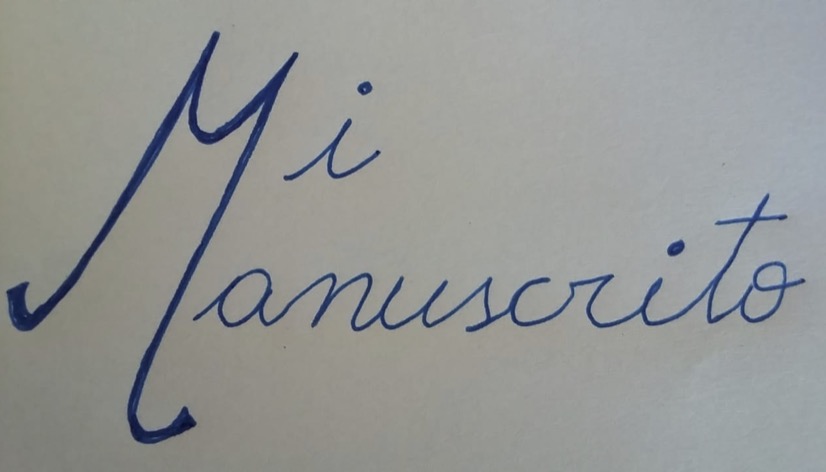 Mi
Manuscrito